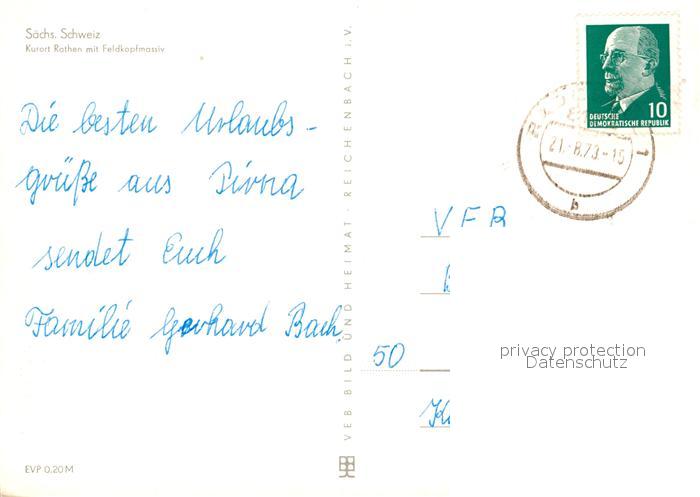 Sächs. Schweiz
Kurort Rathen mit Feldkopfmassiv
Die besten Urlaubs-
grüße aus Pirna
sendet Euch
Familie Gerhard Bach
EVP 0,20 M
VEB BILD UND HEIMAT · REICHENBACH i. V.
10
DEUTSCHE
DEMOKRATISCHE REPUBLIK
21.-8.73.-15
b
VFB
50
privacy protection
Datenschutz